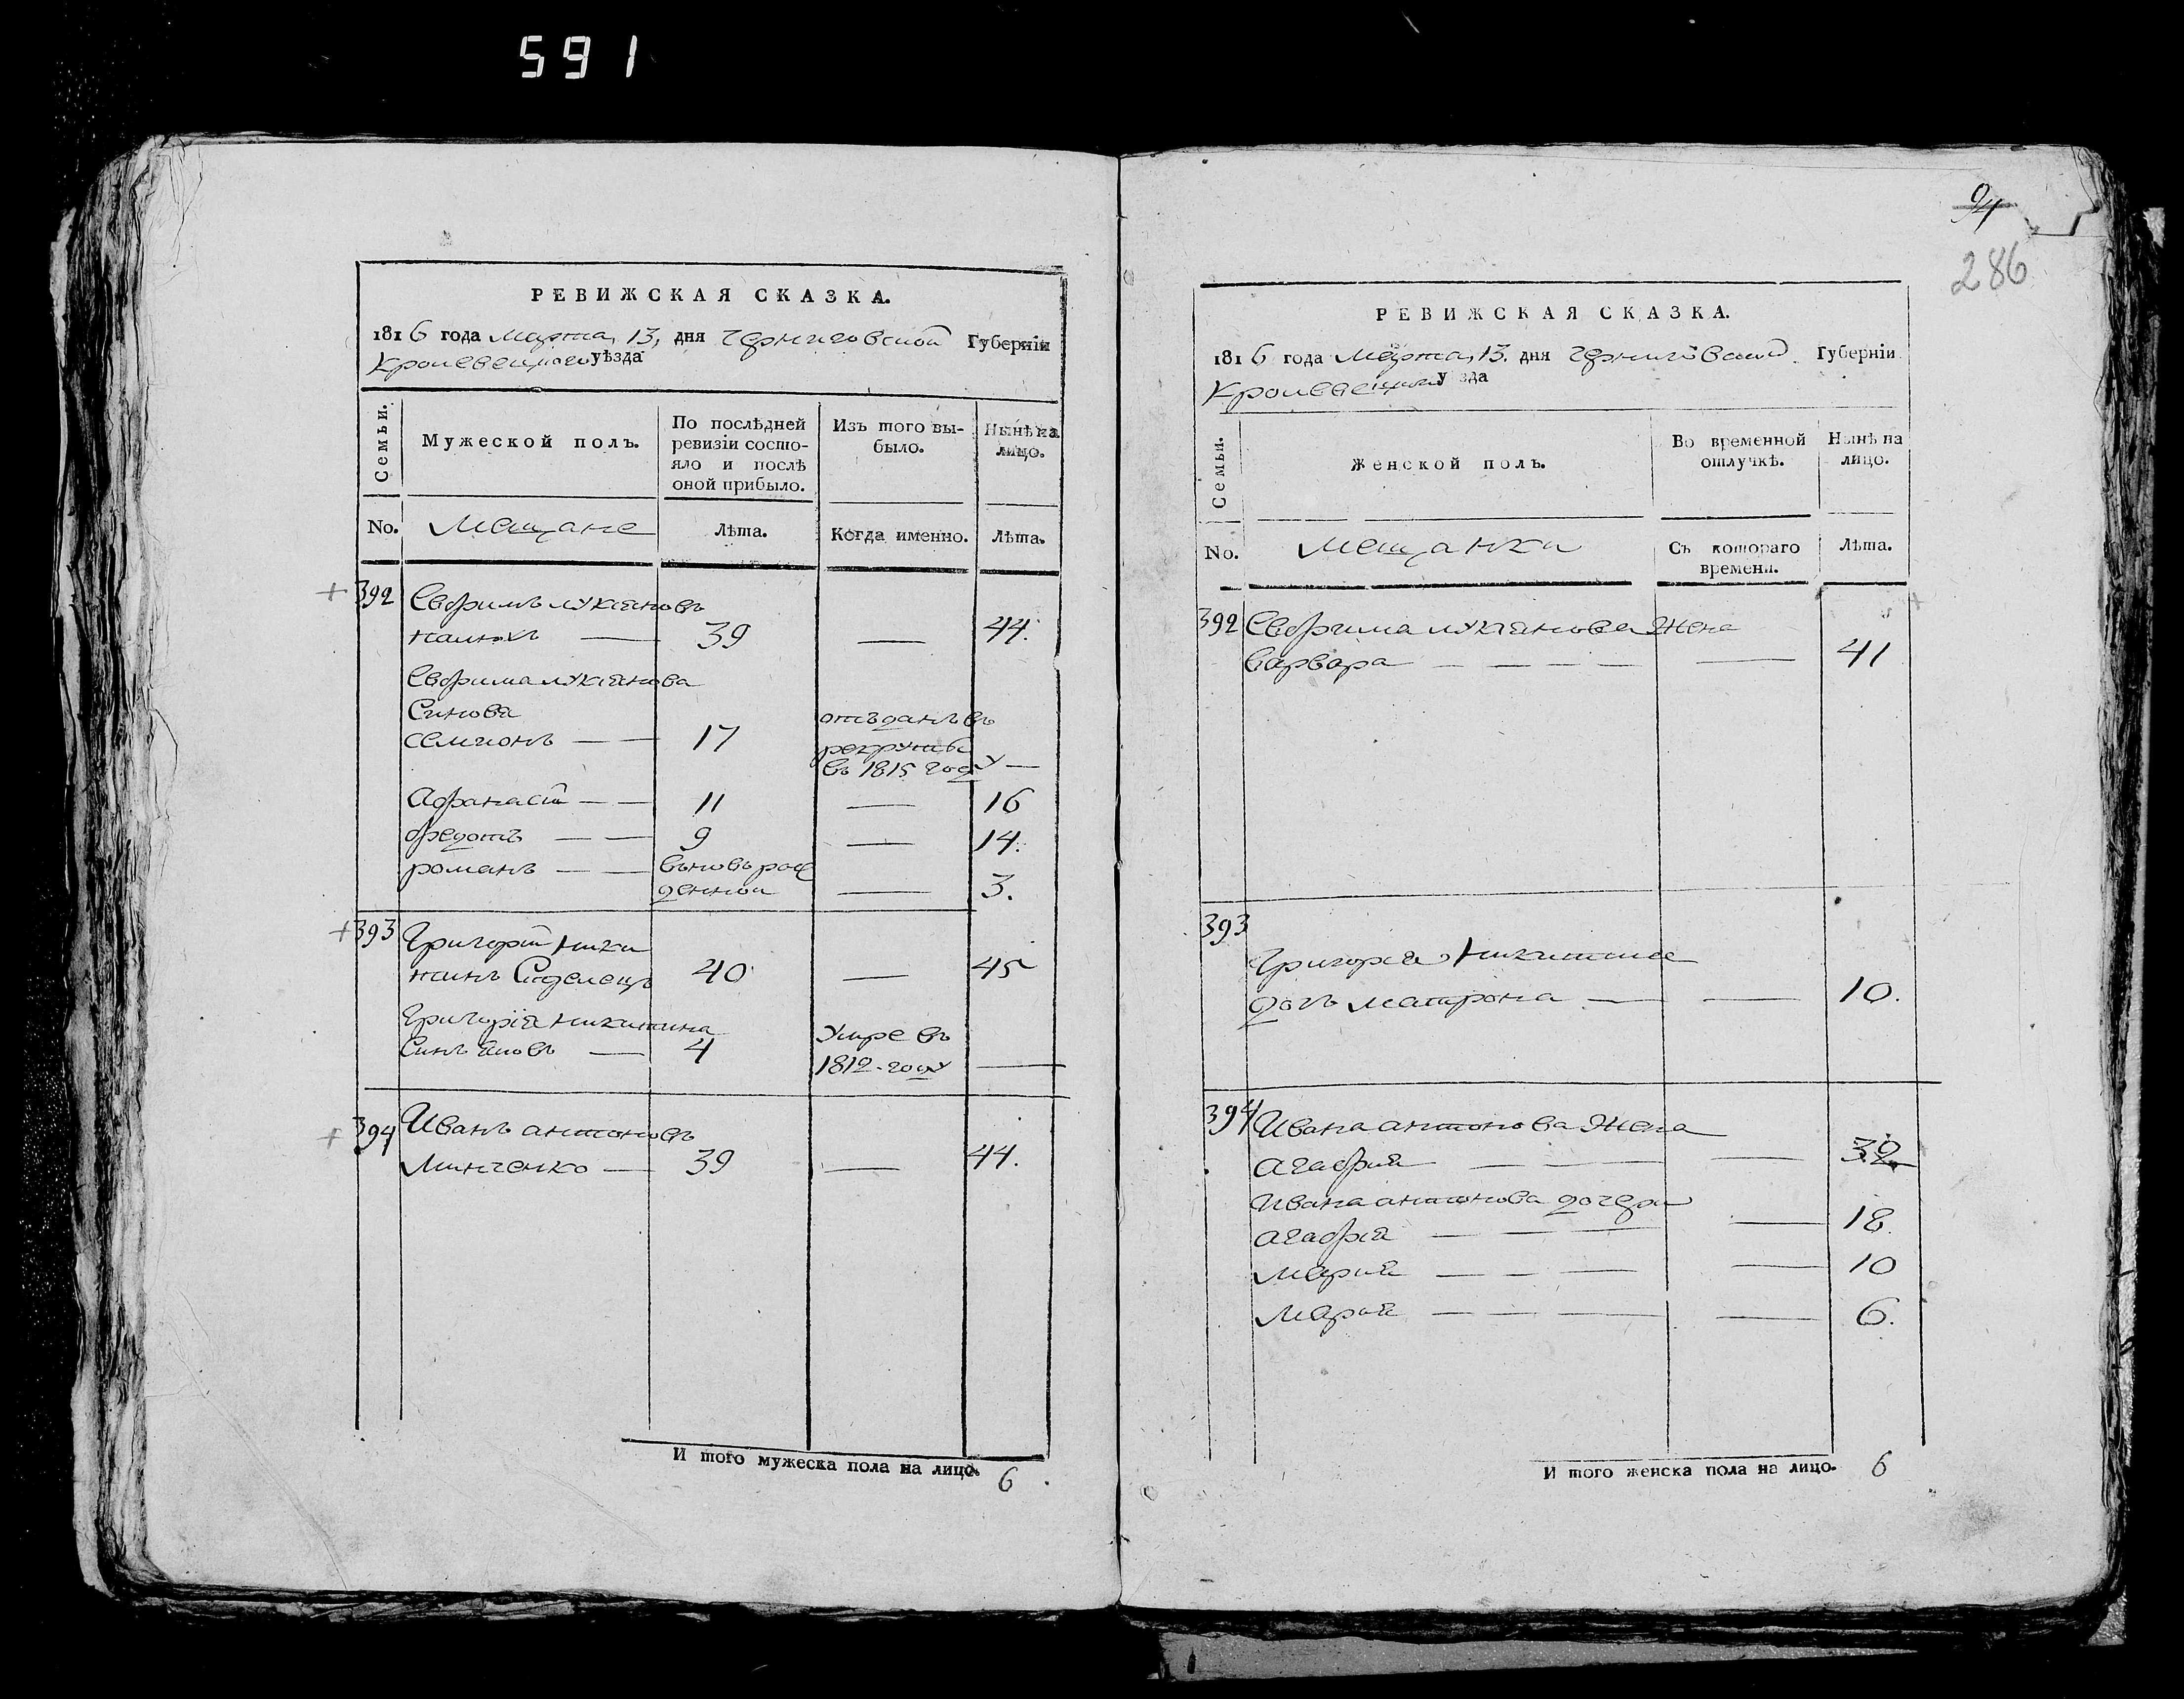 591
РЕВИЖСКАЯ СКАЗКА.
1816 года Марта, 13, дня Черниговской Губерніи
Кролевецкого уѣзда
Семьи.
Мужеской полъ.
По послѣдней
ревизіи состо-
яло и послѣ
оной прибыло.
Изъ того вы-
было.
Нынѣ на
лицо.
No.
Мещане
Лѣта.
Когда именно.
Лѣта.
392 Евфимъ лукяновъ
39 — 44.
Евфима лукянова
Синовя
семионъ — 17 отъданъ въ
рекруты
въ 1815 году —
Афанасій — 11 — 16
федотъ — 9 — 14.
романъ — вьновь рож
денной — 3.
393 Григорій Ники
тинъ 40 — 45
Григорія никитина
Синъ яковъ — 4 Умре въ
1812 году —
394 Иванъ антоновъ
Минченко — 39 — 44.
И того мужеска пола на лицо. 6
94
286
РЕВИЖСКАЯ СКАЗКА.
1816 года Марта, 13. дня Черниговской Губерніи
Кролевецкого у зда
Семьи.
Женской полъ.
Во временной
отлучкѣ.
Нынѣ на
лицо.
No.
Мещанки
Съ котораго
времени.
Лѣта.
392 Евфима лукянова Жена
варвара — — — — — 41
393
Григорія Никитина
дочь матрона — — 10.
394 Ивана антонова Жена
агафия — — — 32
Ивана антонова дочери
агафія — — — — 18.
мария — — — — 10
Мария — — — — 6.
И того женска пола на лицо. 6